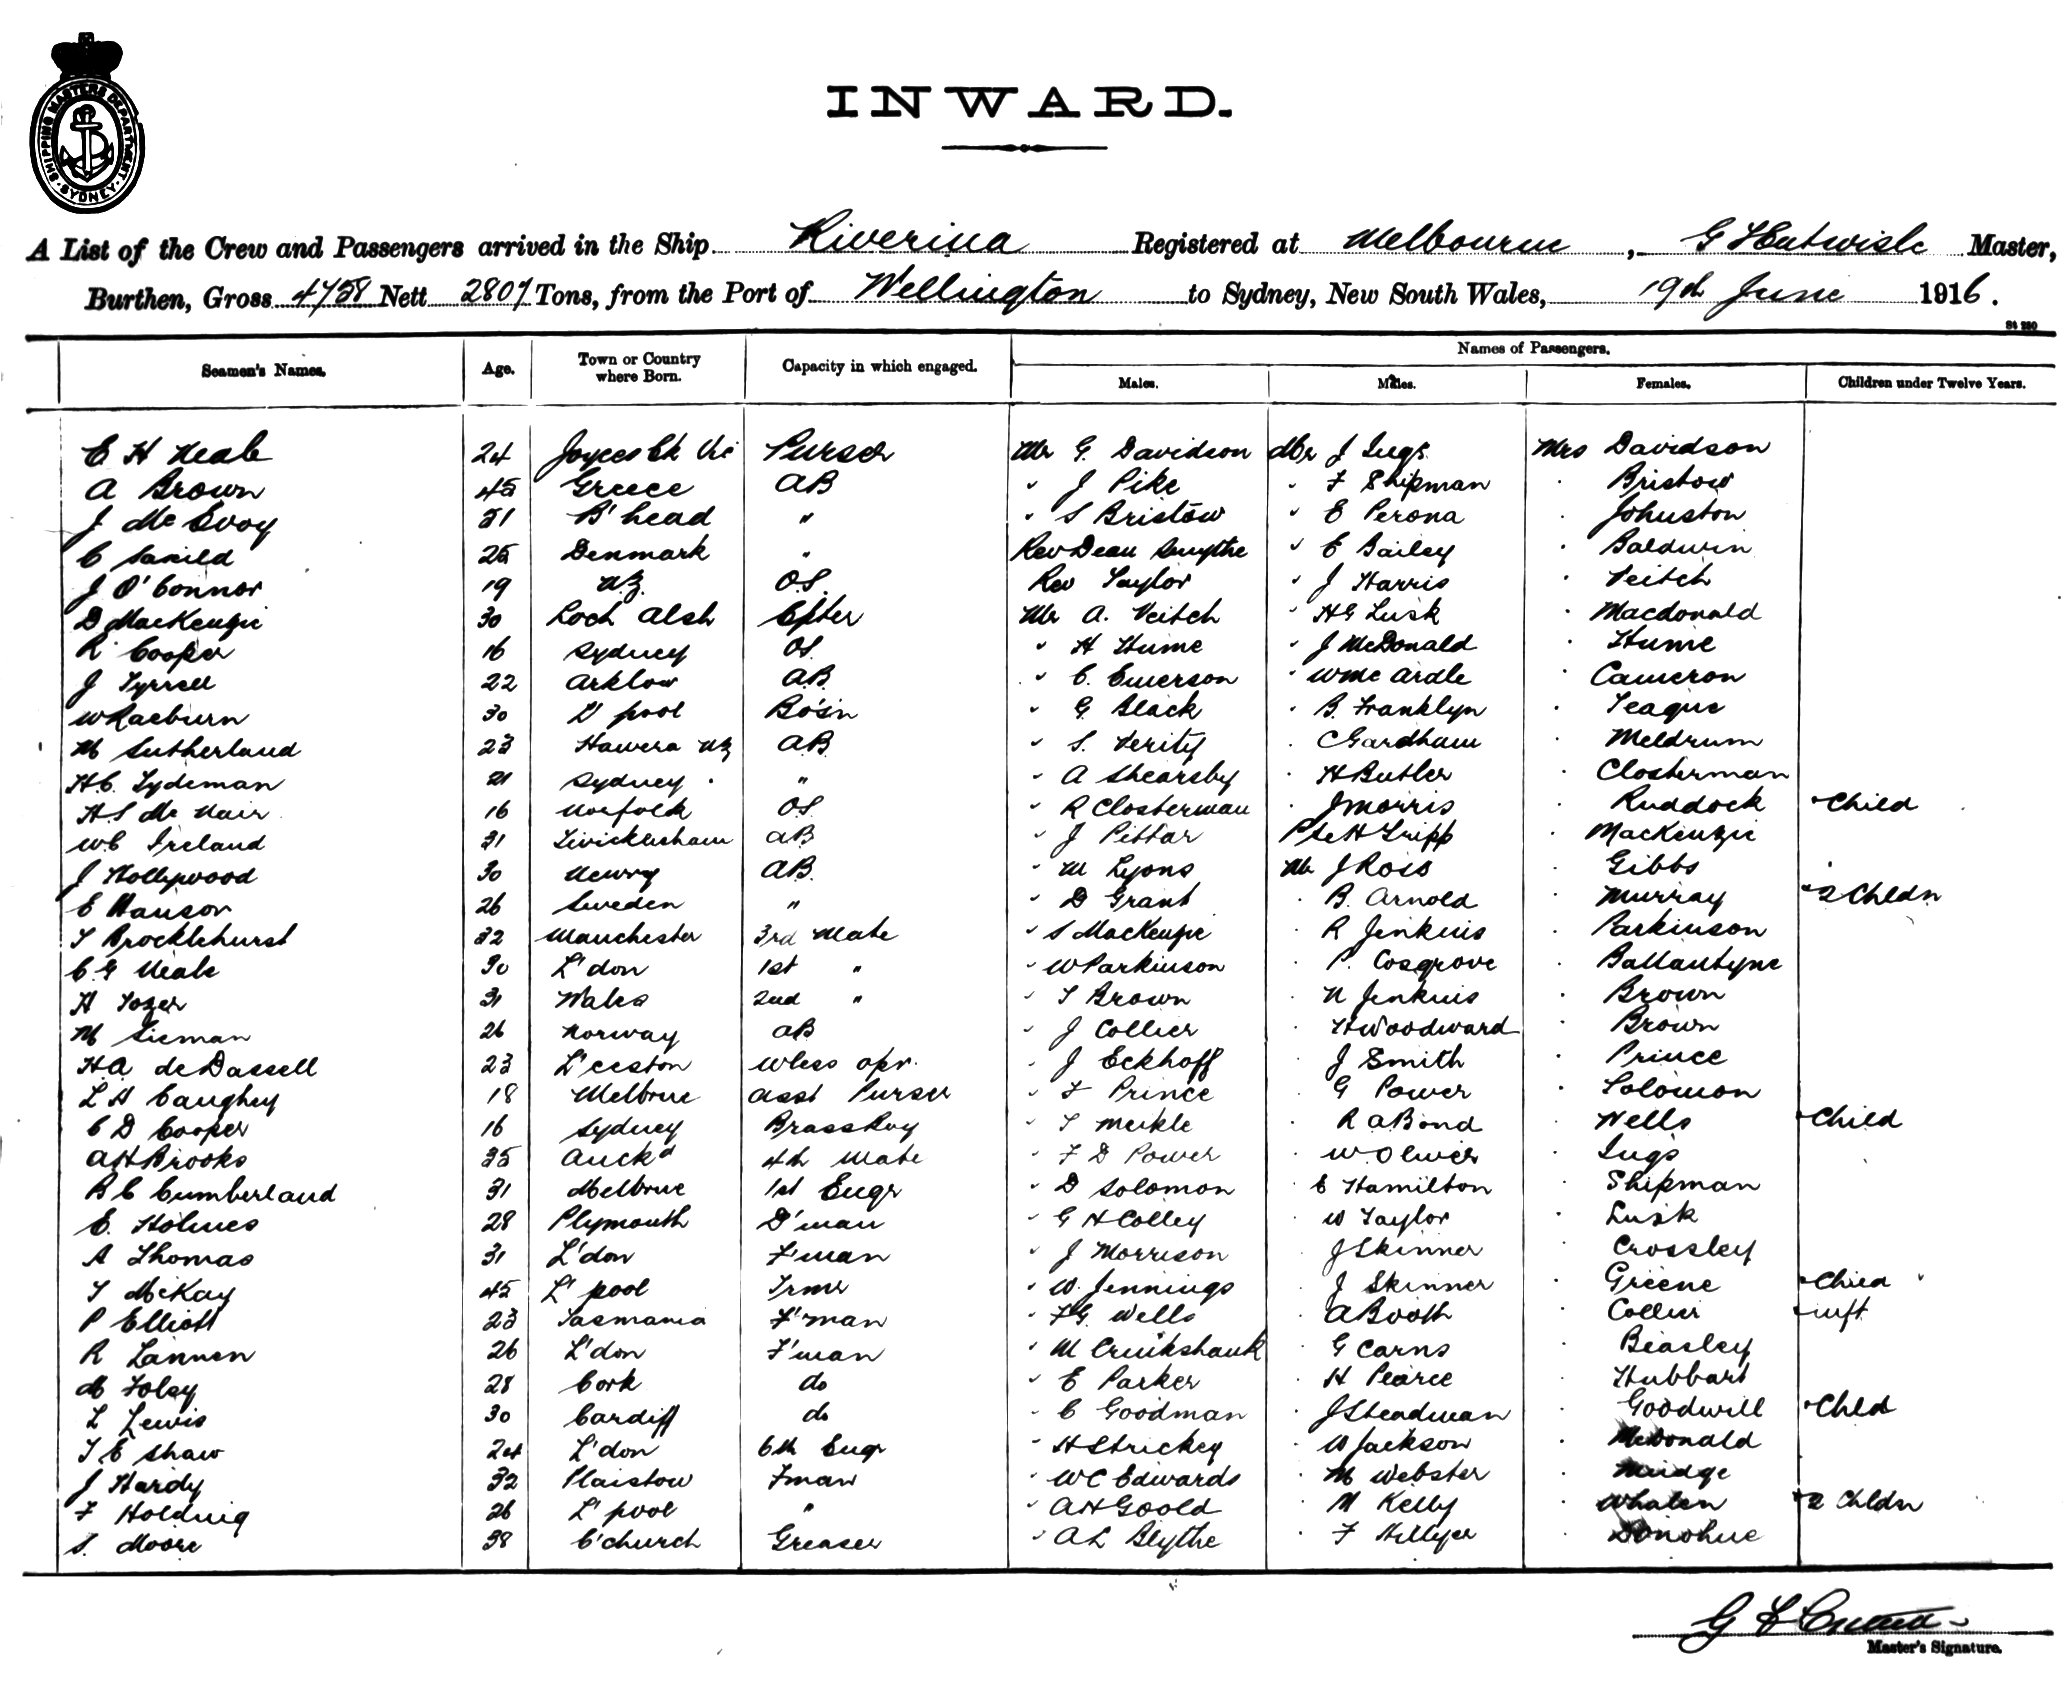 SHIPPING MASTERS DEPARTMENT
· SYDNEY ·
INWARD.
A List of the Crew and Passengers arrived in the Ship Riverina Registered at Melbourne, G Master,
Burthen, Gross 4758 Nett 2807 Tons, from the Port of Wellington to Sydney, New South Wales, 19th June 1916.
St 280
Seamen's Names. Age. Town or Country where Born. Capacity in which engaged. Names of Passengers.
Males. Males. Females. Children under Twelve Years.
E H Neale 24 Joyces Ck Vic Purser Mr G. Davidson Mr J Mrs Davidson
A Brown 45 Greece AB " J Pike " F Shipman " Bristow
J McEvoy 51 B'head " " S Bristow " E Perona " Johnston
C 25 Denmark " Rev Dean Smythe " E Bailey " Baldwin
J O'Connor 19 NZ. O.S. Rev Taylor " J Harris " Veitch
D MacKenzie 30 Loch Alsh C'pter Mr A. Veitch " H G Lusk " Macdonald
R Cooper 16 Sydney OS. " H Hume " J McDonald " Hume
J Tyrrell 22 Arklow A.B. " C. Emerson " W McArdle " Cameron
W Raeburn 30 L'pool Bo'sn " G. Black " B. Franklyn " Teague
M Sutherland 23 Hawera NZ A.B. " S. Verity " C Gardham " Meldrum
H.C. Tydeman 21 Sydney " " A Shearsby " H Butler " Closterman
H S McNair 16 Norfolk OS. " R Closterman " J Morris " Ruddock " Child
W C Ireland 31 Twickenham AB " J Pittar Pte H Tripp " MacKenzie
J Hollywood 30 Newry AB. " M Lyons Mr J Ross " Gibbs
E Hanson 26 Sweden " " D Grant " B. Arnold " Murray " 2 Chldn
T Brocklehurst 32 Manchester 3rd Mate " S MacKenzie " R Jenkins " Parkinson
C. G Neale 30 L'don 1st " " W Parkinson " P. Cosgrove " Ballantyne
H Tozer 31 Wales 2nd " " T Brown " N Jenkins " Brown
M Sieman 26 Norway AB " J Collier " H Woodward " Brown
H.A. de Dassell 23 L'ceston W'less opr. " J Eckhoff " J Smith " Prince
L H Caughey 18 Melbrne Asst Purser " F Prince " G Power " Solomon
C D Cooper 16 Sydney BrassBoy " T Meikle " R A Bond " Wells " Child
A H Brooks 35 Auckd 4th Mate " F D Power " W Oliver "
B C Cumberland 31 Melbrne 1st Engr " D Solomon " E Hamilton " Shipman
E. Holmes 28 Plymouth D'man " G H Colley " W Taylor " Lusk
A Thomas 31 L'don F'man " J Morrison " J Skinner " Crossley
T McKay 45 L'pool Trmr " W. Jennings " J Skinner " Greene " Child
P Elliott 23 Tasmania F'man " F G. Wells " A Booth " Collier " inft
R Lannen 26 L'don F'man " M Cruikshank " G Carns " Beasley
M Foley 28 Cork do " E Parker " H Pearce " Hubbart
L Lewis 30 Cardiff do " C Goodman " J Steadman " Goodwill " Chld
T. E Shaw 24 L'don 6th Engr " H Strickey " W Jackson " McDonald
J Hardy 32 Plaistow Fman " W C Edwards " M Webster " Mudge
F Holding 26 L'pool " " A H Goold " M Kelly " Whalen + 2 Chldn
S. Moore 38 C'church Greaser " A L Blythe " F Hillyer " Donohue
Master's Signature.